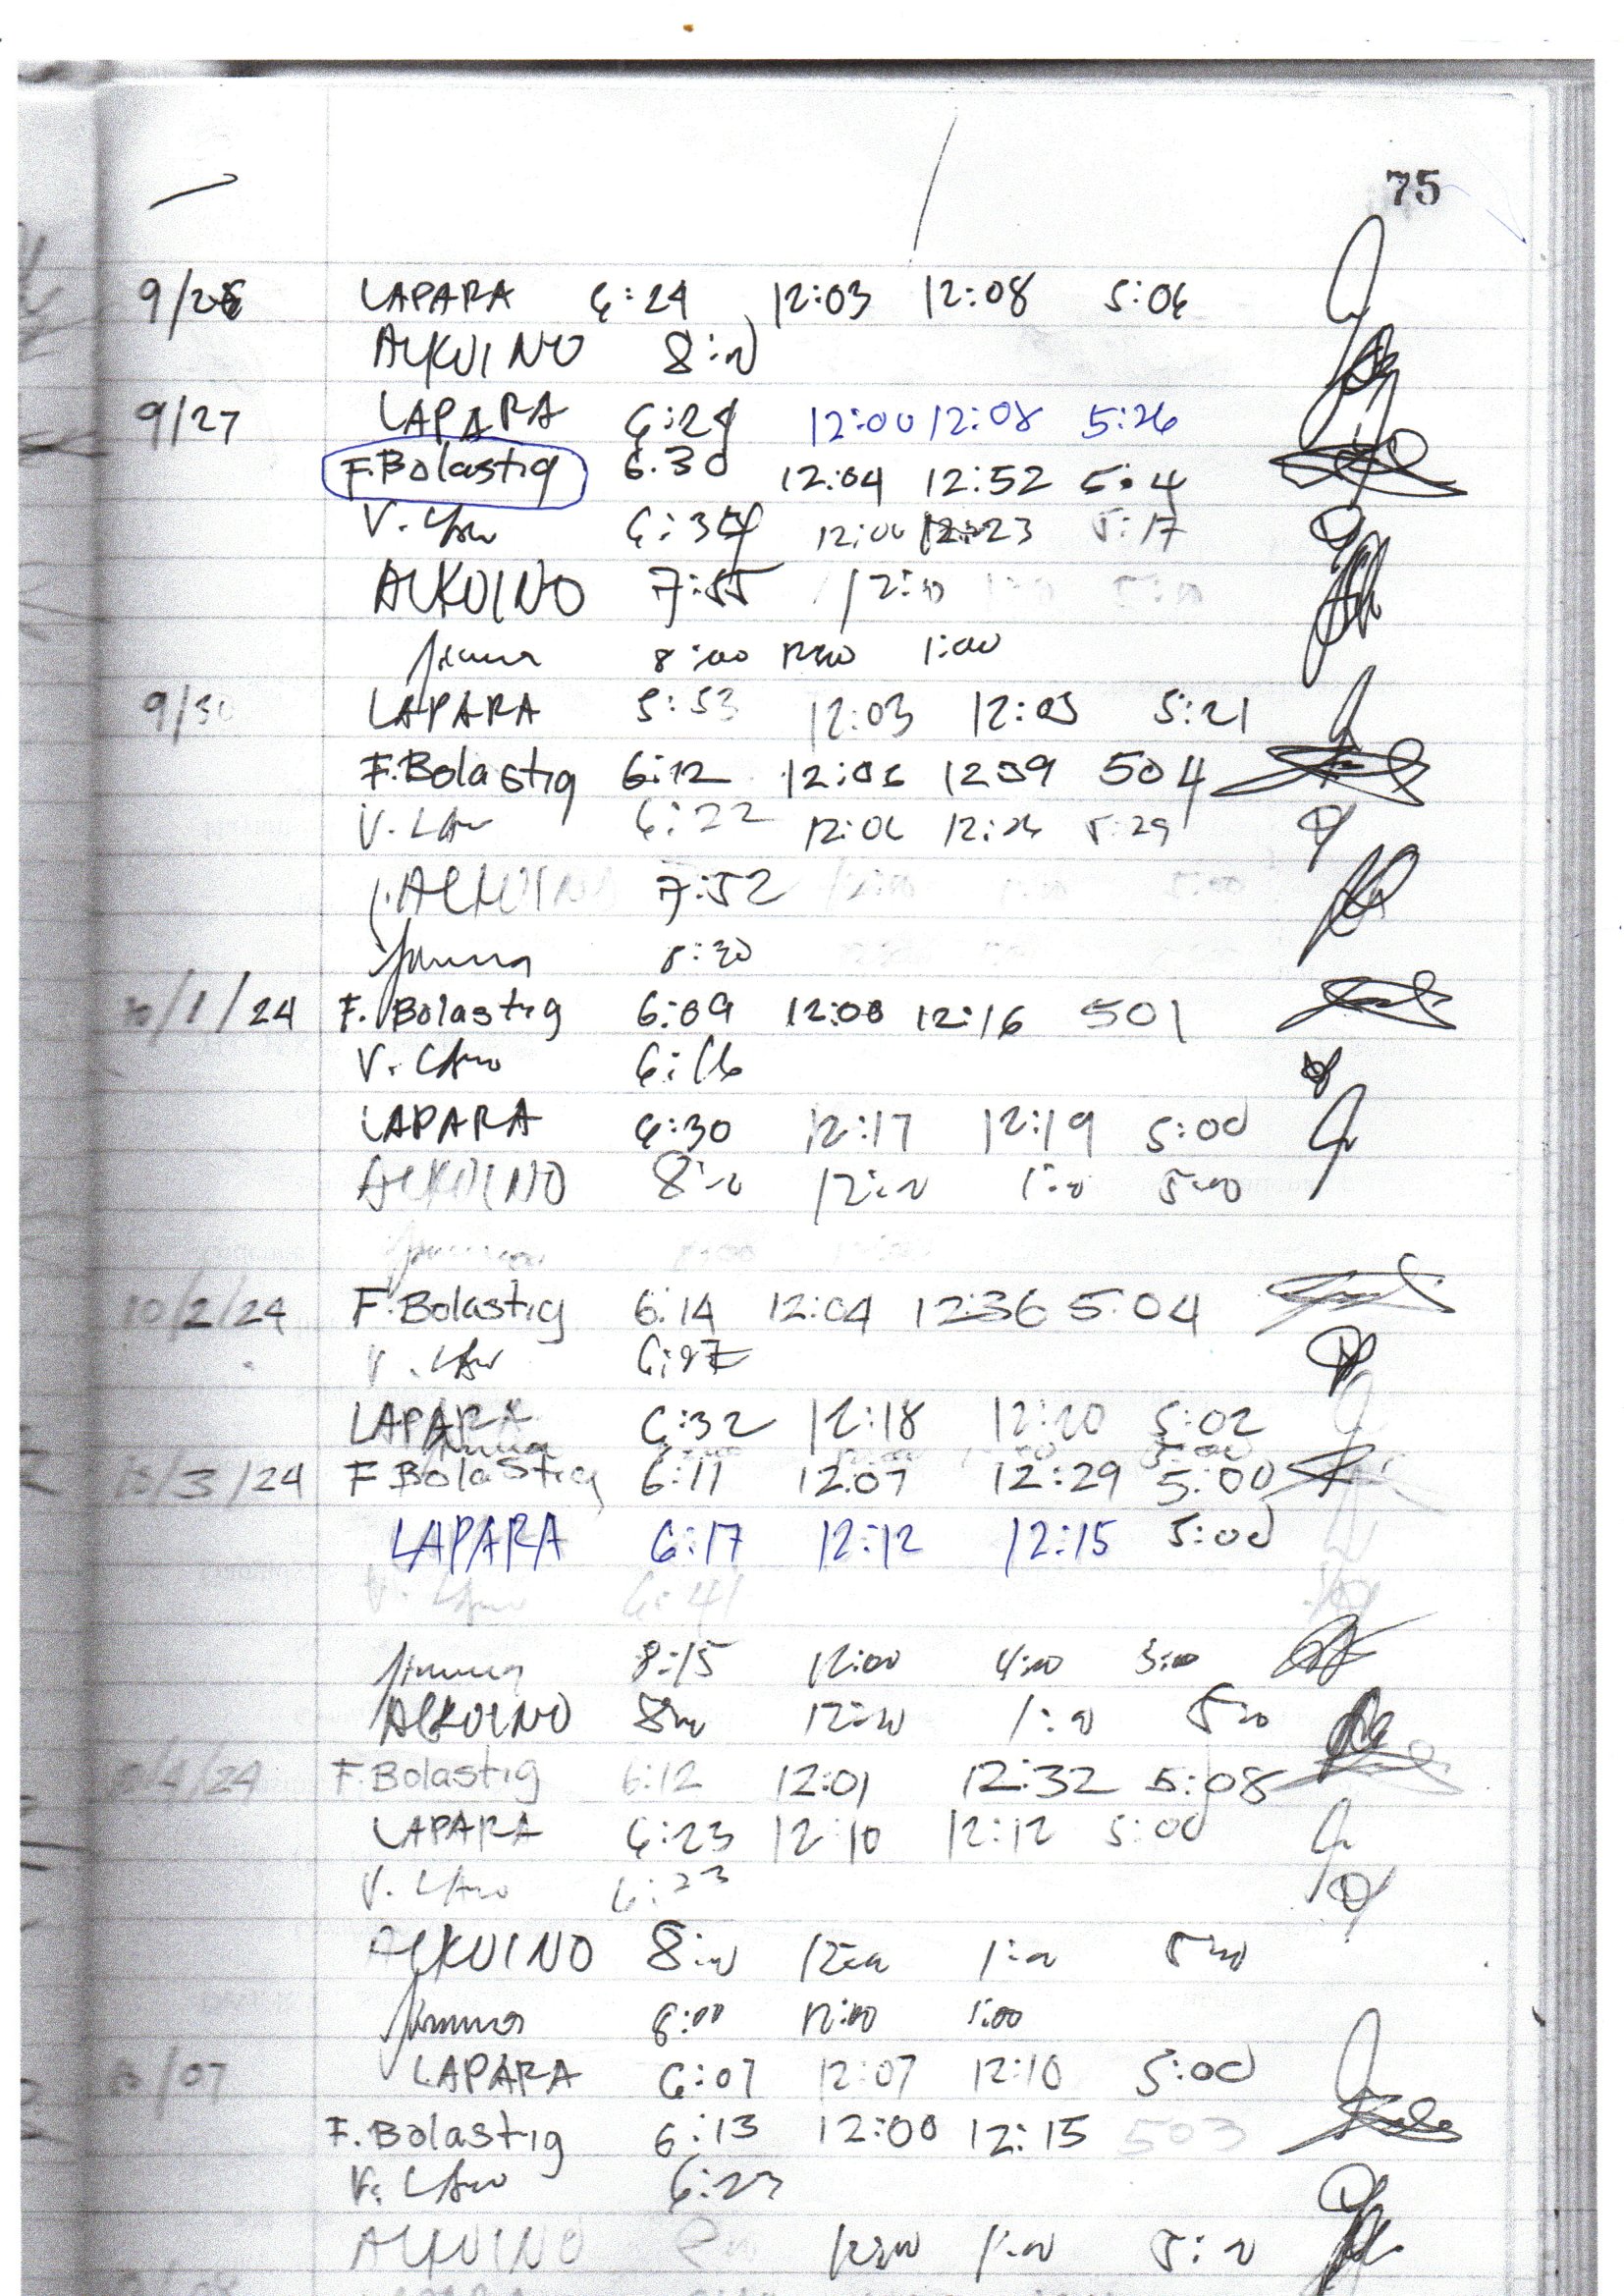 75
9/26 LAPARA 6:24 12:03 12:08 5:06
ALKUINO 8:00
9/27 LAPARA 6:24 12:00 12:08 5:26
F.Bolastig 6.30 12:04 12:52 5:4
V. 6:34 12:00 12:23 5:17
ALKUINO 7:55 12:00 5:00
8:00 12:00 1:00
9/30 LAPARA 5:53 12:03 12:05 5:21
F.Bolastig 6:12 12:06 1239 504
V. 6:22 12:06 12:26 5:29
ALKUINO 7:52 12:00 1:00 5:00
8:30
10/1/24 F. Bolastig 6:09 12:00 12:16 501
V. 6:16
LAPARA 6:30 12:17 12:19 5:00
ALKUINO 8:00 12:00 1:00 5:00
10/2/24 F.Bolastig 6:14 12:04 1236 5:04
V.
LAPARA 6:32 12:18 12:20 5:02
10/3/24 F.Bolastig 6:11 12.07 12:29 5:00
LAPARA 6:17 12:12 12:15 5:00
V. 6:41
8:15 12:00 5:00
ALKUINO 8:00 12:00 1:00 5:00
10/4/24 F.Bolastig 6:12 12:01 12:32 5:08
LAPARA 6:23 12:10 12:12 5:00
V. 6:23
ALKUINO 8:00 12:00 1:00 5:00
8:00 12:00 1:00
10/07 LAPARA 6:07 12:07 12:10 5:00
F.Bolastig 6:13 12:00 12:15 503
V. 6:23
ALKUINO 12:00 1:00 5:00